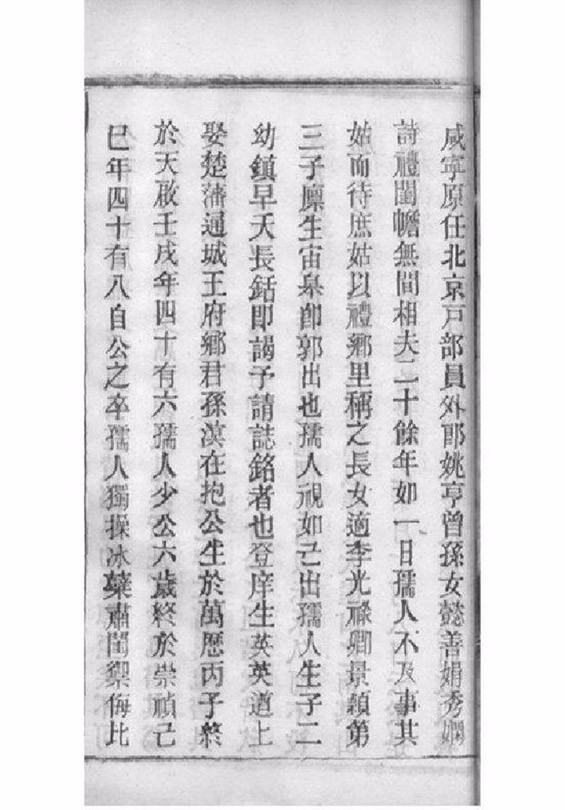 咸寧原任北京戸部員外郎姚亨曾孫女懿善娟秀嫻
詩禮閨幨無間相夫二十餘年如一日孺人不及事其
姑而待庶姑以禮鄉里稱之長女適李光祿卿景穎第
三子廪生宙臯卽郭出也孺人視如己出孺人生子二
幼鎮早夭長銛即謁予請誌銘者也登庠生英英遒上
娶楚藩通城王府鄉君孫淏在抱公生於萬厯丙子終
於天啟壬戌年四十有六孺人少公六歲終於崇禎己
巳年四十有八自公之卒孺人獨操冰蘖肅閨禦侮比